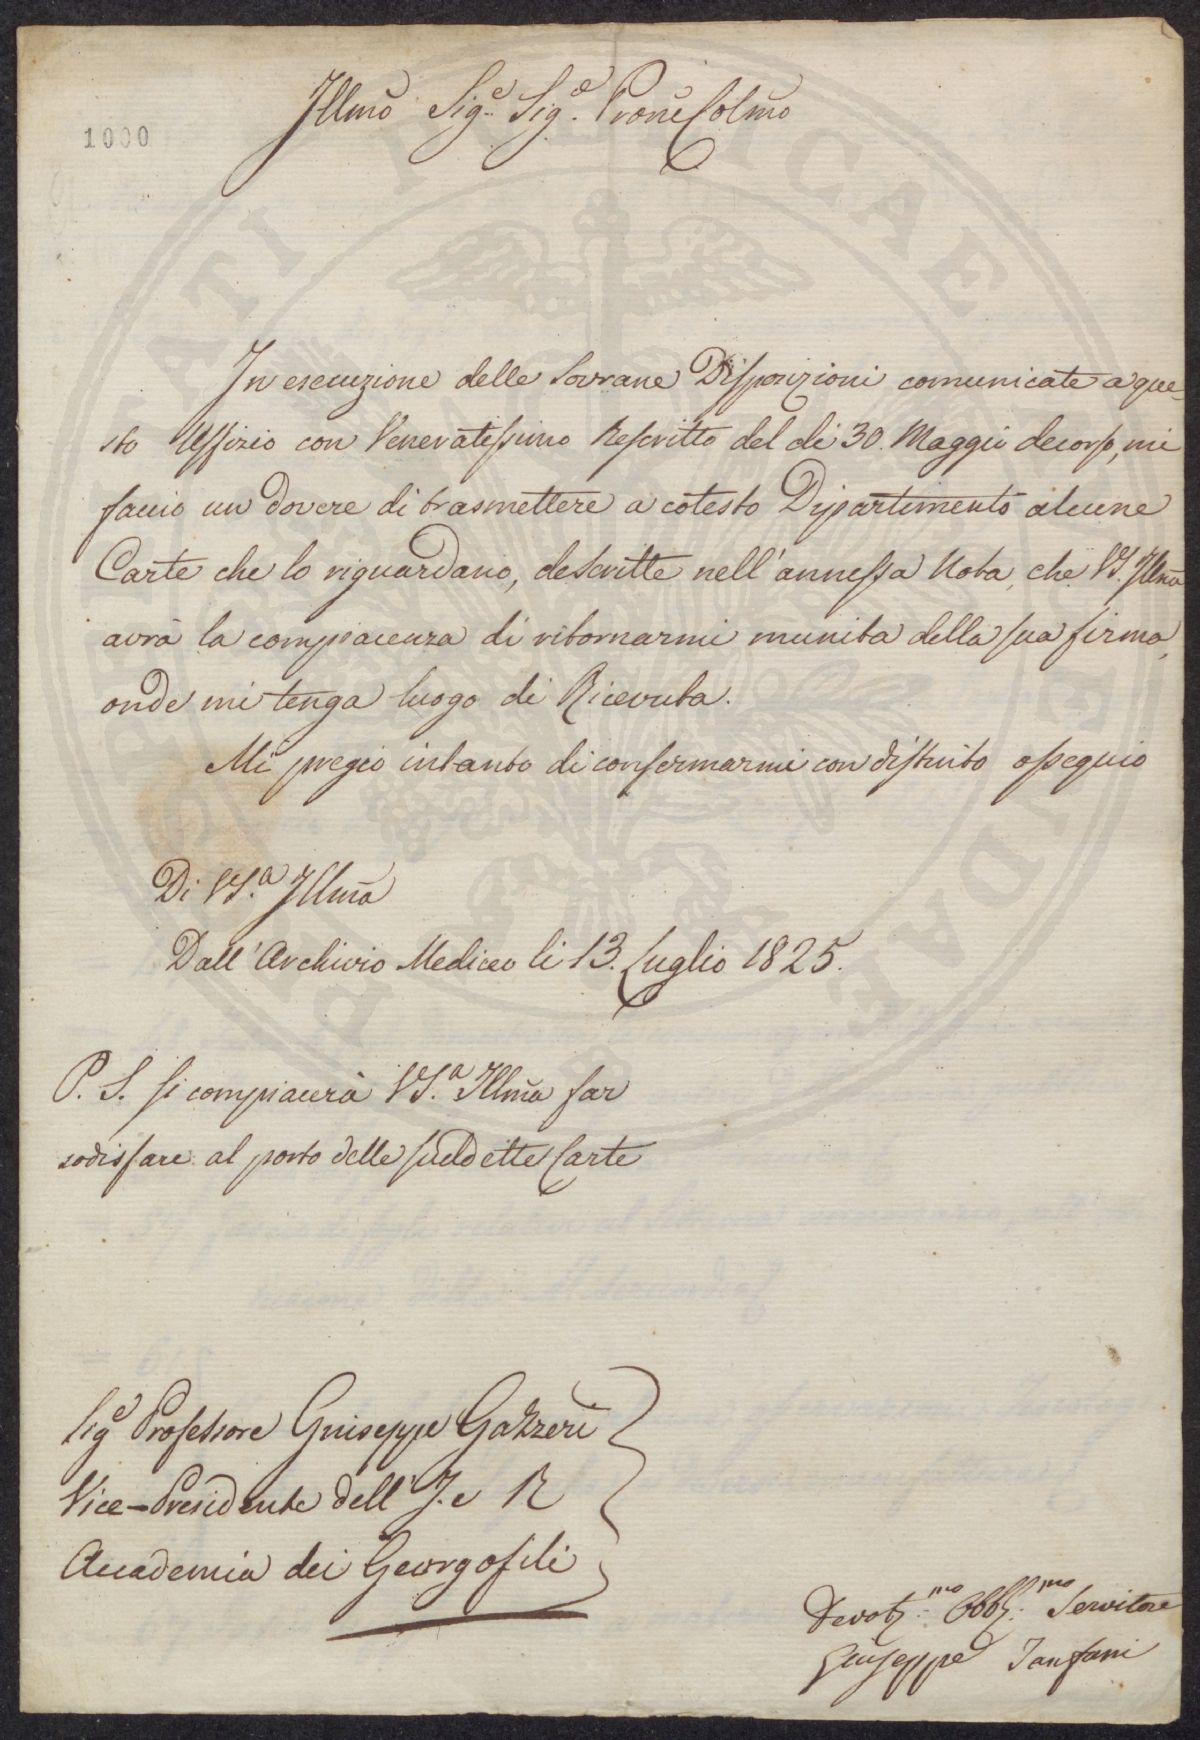 1000
Illmõ Sig.e Sig.e Prone Colmõ
In esecuzione delle Sovrane Disposizioni comunicate a que-
sto Uffizio con Veneratissimo Rescritto del dì 30. Maggio decorso, mi
faccio un dovere di trasmettere a cotesto Dipartimento alcune
Carte che lo riguardano, descritte nell'annessa Nota, che VS. Illmã
avrà la compiacenza di ritornarmi munita della sua firma,
onde mi tenga luogo di Ricevuta.
Mi pregio intanto di confermarmi con distinto ossequio
Di VS.a Illmã
Dall'Archivio Mediceo li 13. Luglio 1825.
P. S. si compiacerà VS.a Illmã far
sodisfare al porto delle suddette Carte
Sig.e Professore Giuseppe Gazzeri
Vice-Presidente dell'I. e R
Accademia dei Georgofili
Devotiss.mo Obbl.mo Servitore
Giuseppe Tanfani